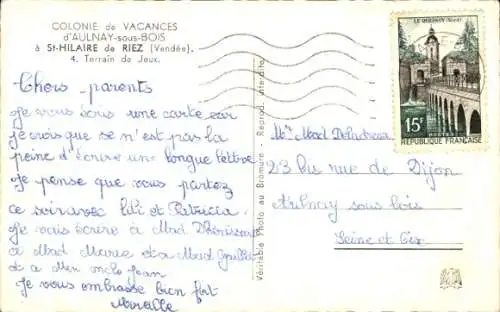 COLONIE de VACANCES
d'AULNAY-sous-BOIS
à St-HILAIRE de RIEZ (Vendée).
4. Terrain de Jeux.
Chers parents
Je vous écris une carte car
je crois que se n'est pas la
peine d'écrire une longue lettre
Je pense que vous partez
ce soir avec Lili et Patricia.
Je vais écrire à Mad
à Mad Marie et a Mad
et a Jean
Je vous embrasse bien fort
Mireille
Véritable Photo au Bromure - Reprod. interdite.
LE QUESNOY (Nord)
15F
POSTES
REPUBLIQUE FRANÇAISE
Mad
23 bis rue de Dijon
Aulnay sous bois
Seine et Oix